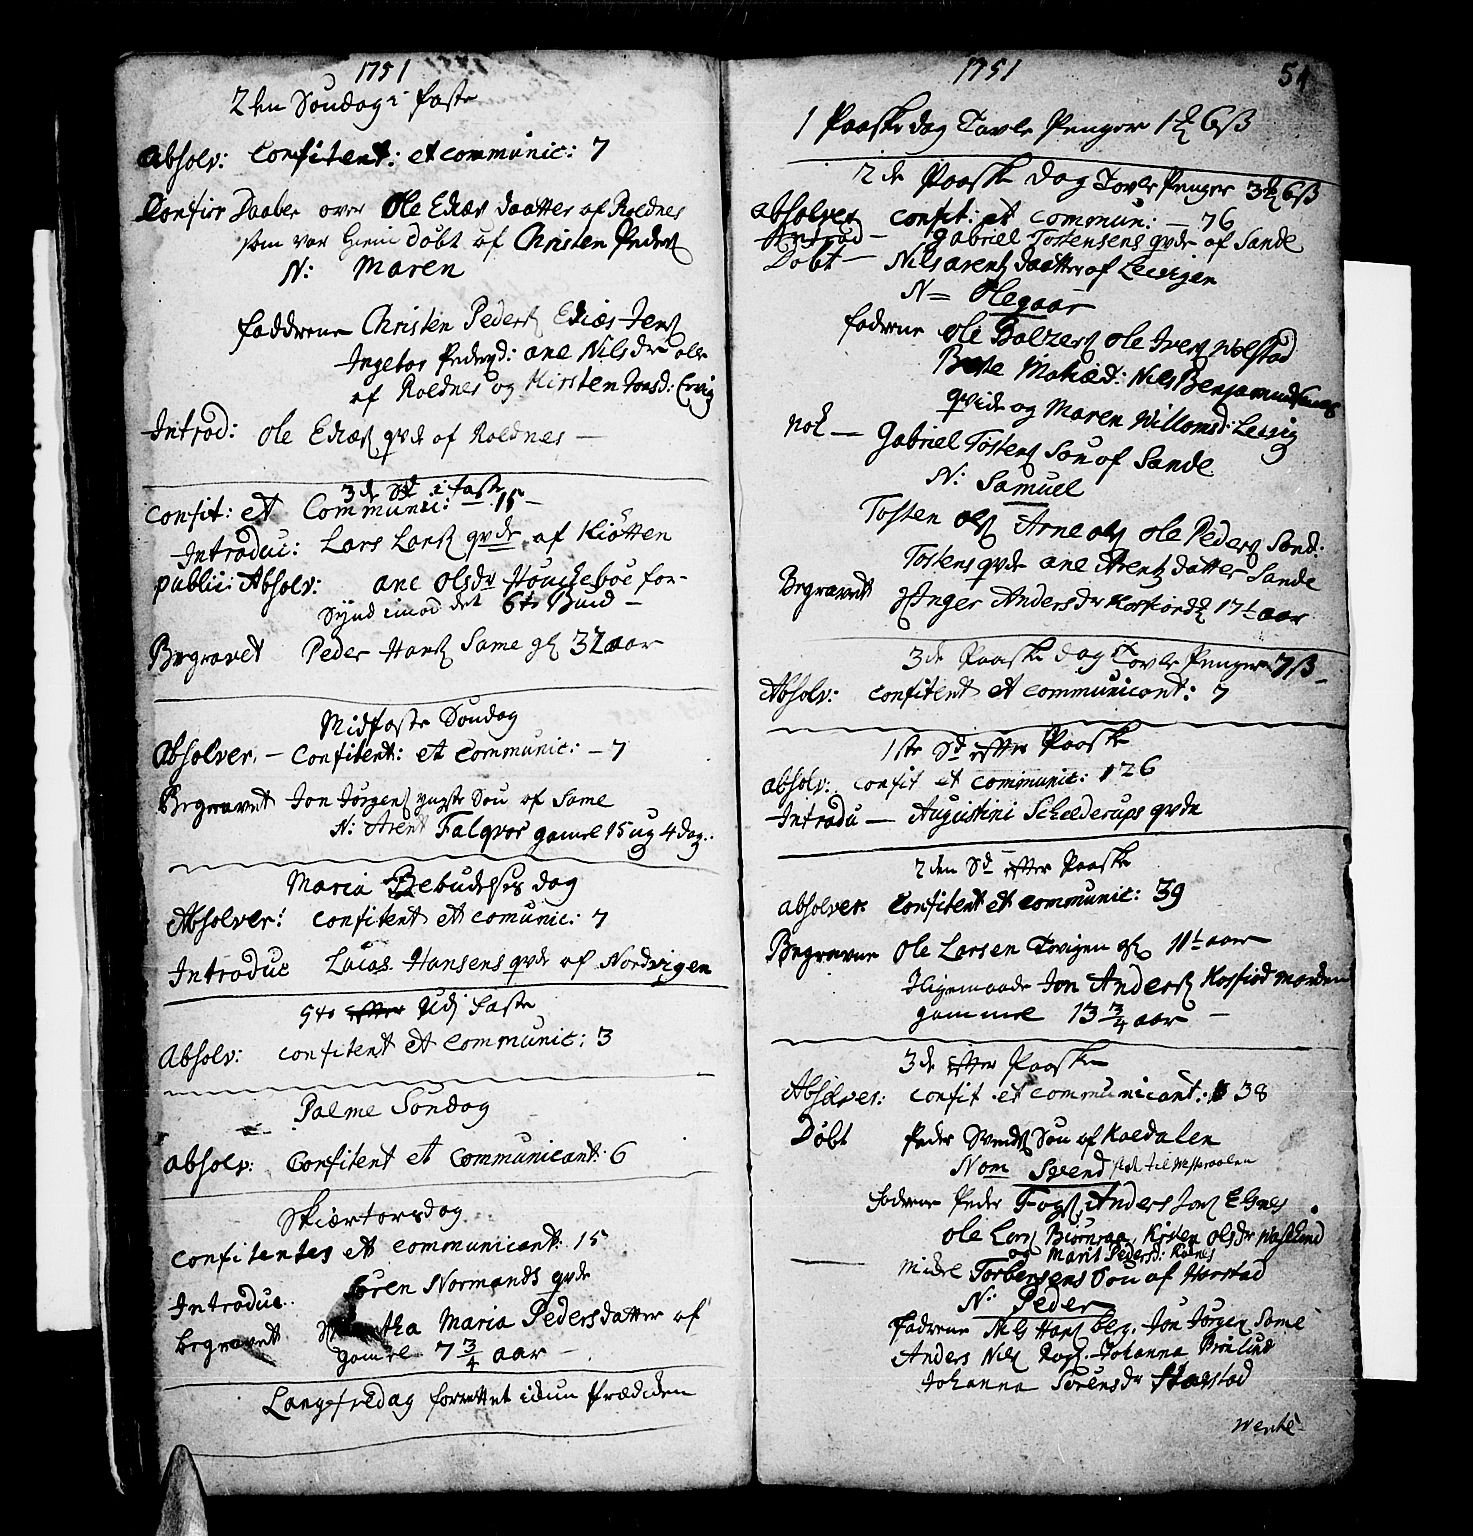 1751
2den Søndag i faste
Absolv: Confitent: et communic: 7
Confir Daaben over Ole Ediæs daatter af Roldnes
som var hiem døbt af Christen Peders
N: Maren
fadderne Christen Peders Ediæs Jens
Ingebor Pedersd: ane Nilsdr alle
af Roldnes og Kirsten Jonsd:
Introd: Ole Ediæs qvde af Roldnes —
3de Sd i faste
Confit: et Communi: — 15 —
Introduc: Lars Lars qvde af Kiøtten
public: Absolv: ane Olsdr for-
Synd imod det 6te Bud —
Begravet Peder Hans Same gl 32 aar
Midfaste Søndag
Absolver. — Confitent: et Communic: — 7
Begravet Jon Jørgens yngste Søn af Same
N: Arent Falqvor gamel 15 ug 4 dag.
Maria Bebudelses dag
Absolver: Confitent et comunic: 7
Introduc Lucas Hansens qvde af Nordvigen
5te udj faste
Absolv: confitent et communic: 3
Palme Søndag
absolv: Confitent et Communicant: 6
Skiærtorsdag
Confitentes et communicant: 15
Introduc. Søren Normands qvde
begravet Maria Pedersdatter af
gamel 7 3/4 aar —
Langefredag forrettet idun Prædiken
1751
51
1 Paaske dag Tavle Penger 1 6ß
2de Paaske dag Tavle Penger 3 6ß
absolver confit: et commun: — 76
Introd — Gabriel Tostensens qvde af Sande
Døbt — Nils arents daatter af Levigen
N = Olegaar
faderne Ole Balzers Ole Ivers Molstad
Berte Matiæd: Nils Benjamins
qvide og Maren Willomsd: Levig
not — Gabriel Tostens Søn af Sande
N: Samuel
Tosten Ols Arne Ols Ole Peders Sand:
Tostens qvde ane Arents datter Sande
Begravet Inger Andersdr 17½ aar
3de Paaske dag Tavle Penger 7ß —
Absolv: confitent et communicant: 7
1ste Sd efter Paaske
absolv: confit et communic: 126
Introdu — Augustini Schelderups qvde
2den Sd efter Paaske
absolver. Confitent et communic: 39
Begravne Ole Larsen Tovigen gl 11½ aar
Iligemaade Jon Anders Korsfiord
gammel 13 3/4 aar —
3de efter Paaske
Absolver: confit et communicant: 38
Døbt Peder Svends Søn af Kaldalen
Nom Svend
faderne Peder Fogs, Anders Jons Elgnes
Ole Lars Biørnraa, Kirsten Olsdr
og Marit Pedersd: Roldnes
— Mickel Torbersens Søn af Harstad
N: Peder
Faderne Nils Hans berg. Jon Jørgens Same
Anders Nils Johanna
Johanna Sørensdr Harstad